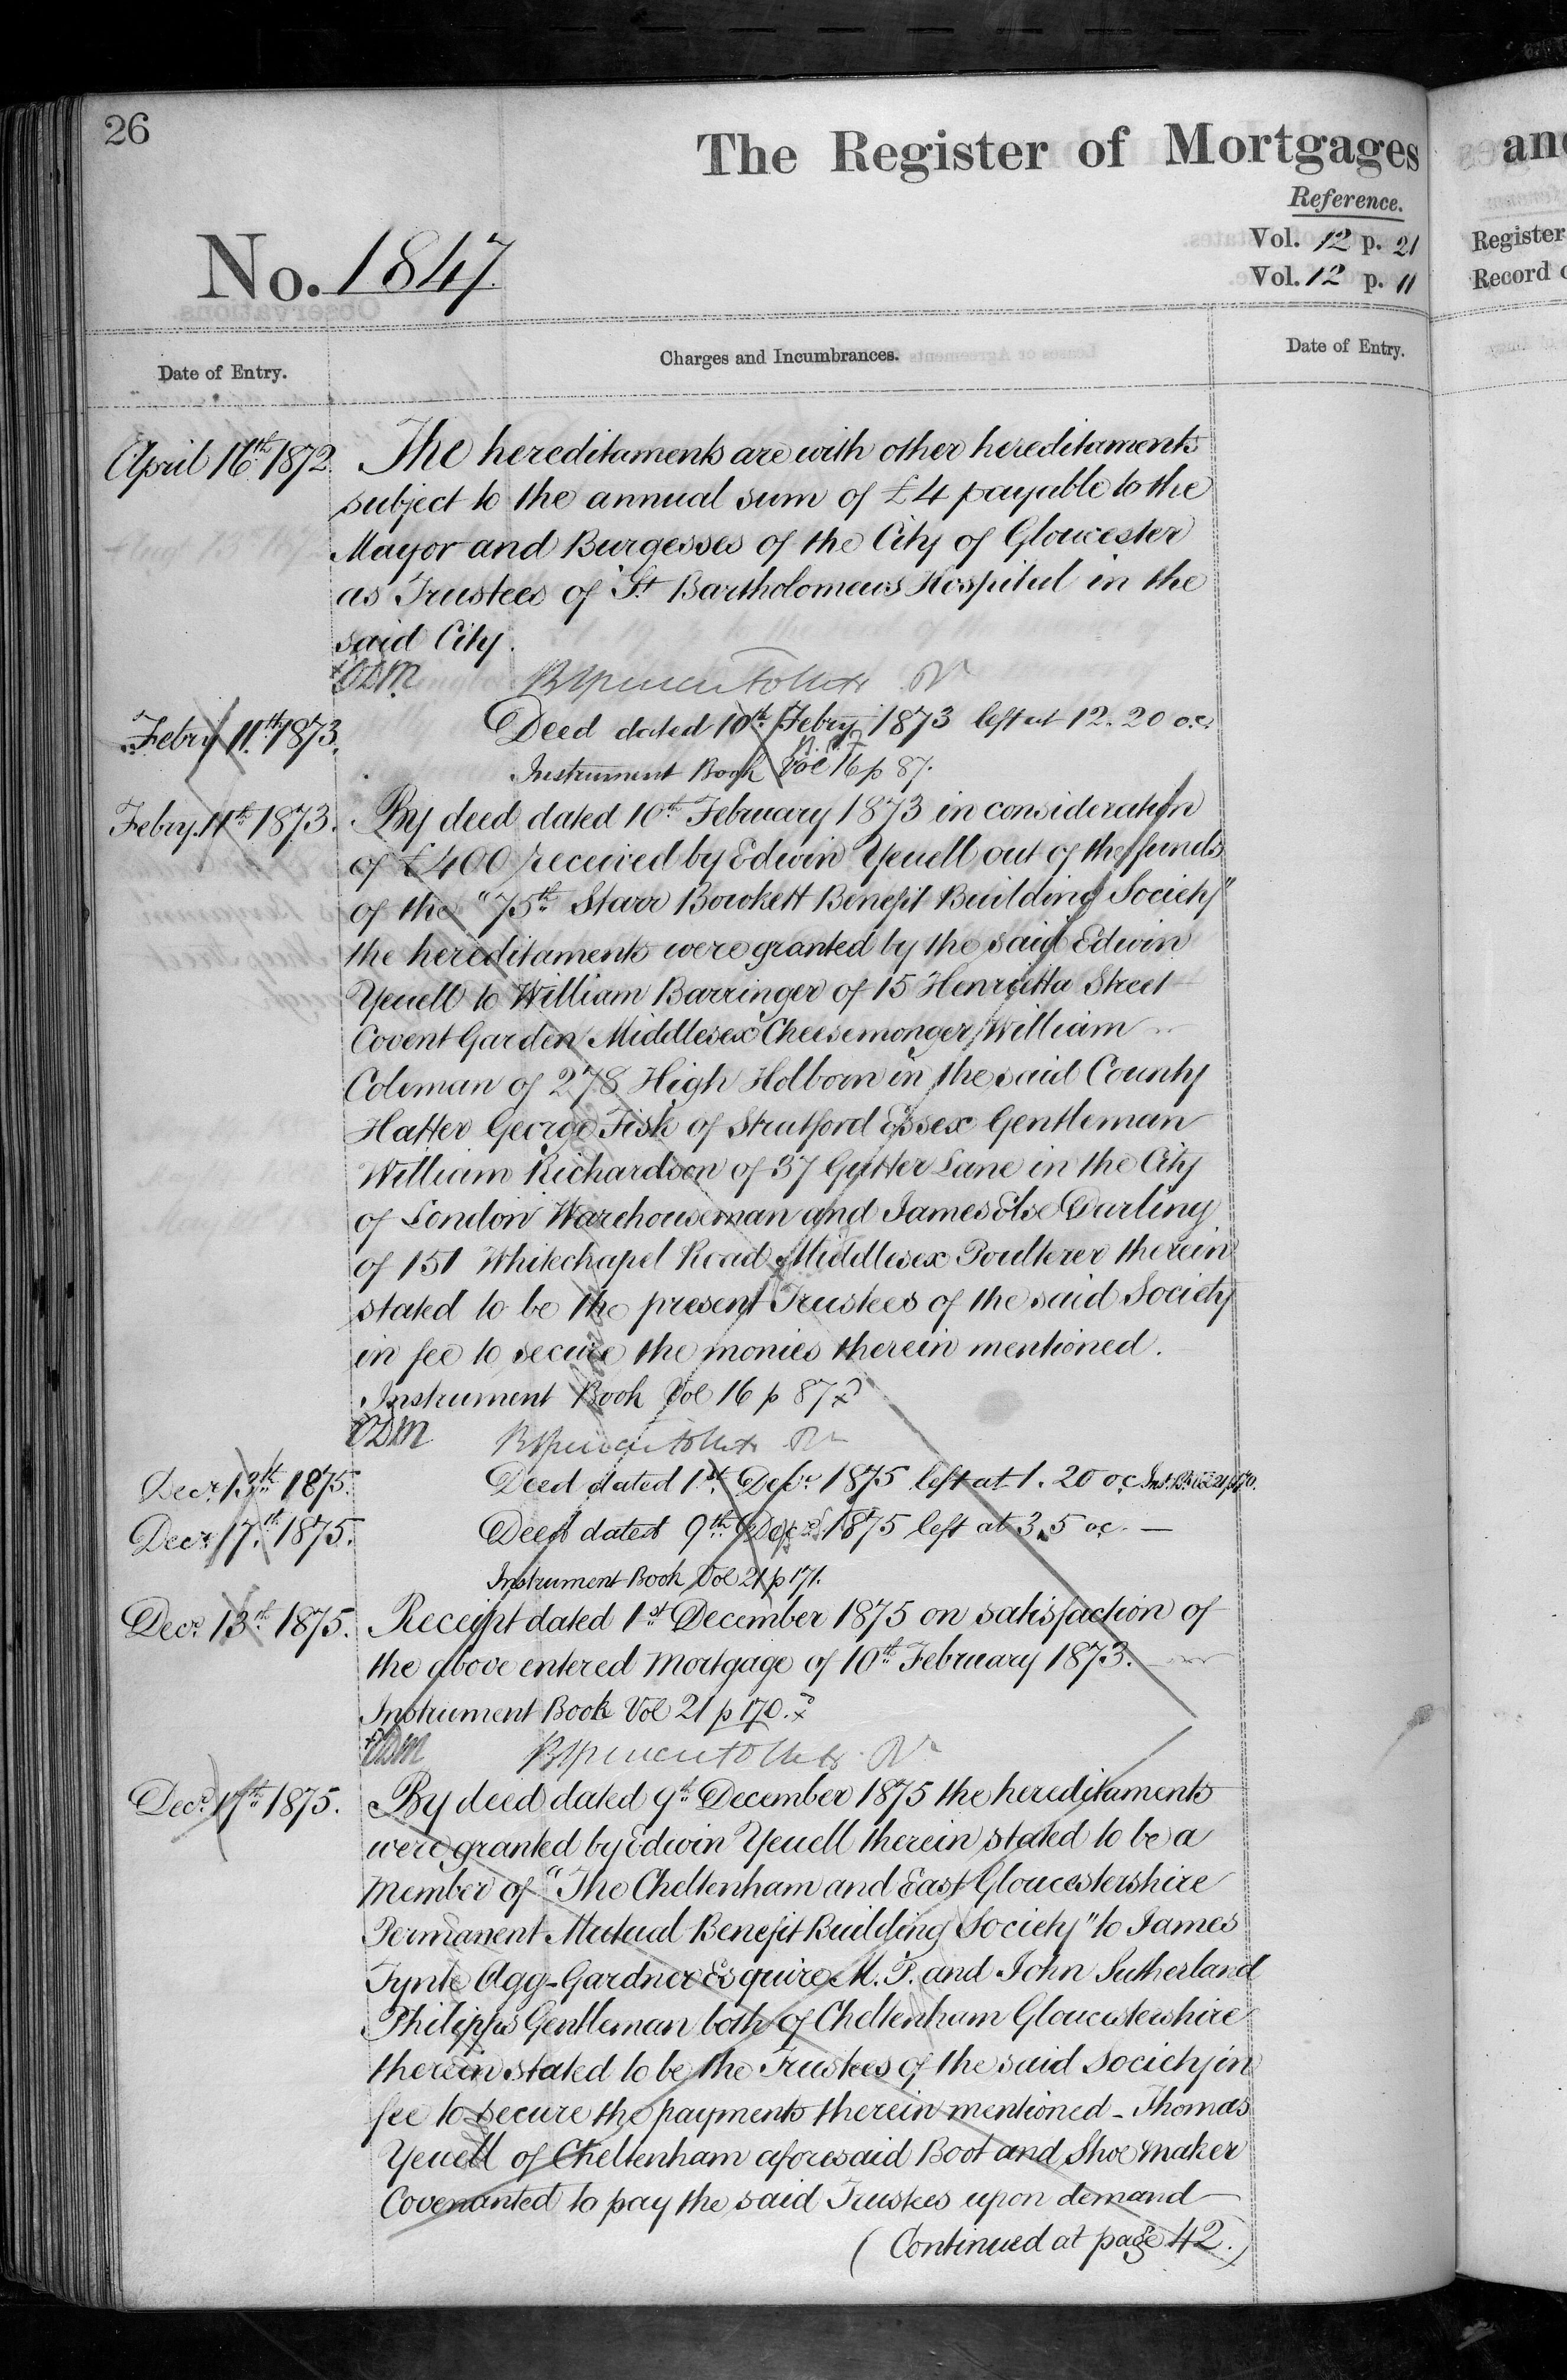 26
The Register of Mortgages
and
Reference.
Vol. 12 p. 21
Register
Vol. 12 p. 11
Record
No. 1847.
Date of Entry.
Charges and Incumbrances.
Date of Entry.
April 16th 1872. The hereditaments are with other hereditaments
subject to the annual sum of £4 payable to the
Mayor and Burgesses of the City of Gloucester
as Trustees of St Bartholomews Hospital in the
said City.
Febry 11th 1873. Deed dated 10th Febry 1873 left at 12.20 oc.
Instrument Book Vol 16 p 87.
Febry. 11th 1873. By deed dated 10th February 1873 in consideration
of £400 received by Edwin Yeuell out of the funds
of the "75th Starr Bowkett Benefit Building Society"
the hereditaments were granted by the said Edwin
Yeuell to William Barringer of 15 Henrietta Street
Covent Garden Middlesex Cheesemonger William
Coleman of 278 High Holborn in the said County
Hatter George Fisk of Stratford Essex Gentleman
William Richardson of 37 Gutter Lane in the City
of London Warehouseman and James Else Darling
of 151 Whitechapel Road Middlesex Poulterer therein
stated to be the present Trustees of the said Society
in fee to secure the monies therein mentioned.
Instrument Book Vol 16 p 87
Decr. 13th 1875. Deed dated 1st Decr 1875 left at 1.20 oc Inst. Bk Vol 21 p 170.
Decr. 17th 1875. Deed dated 9th Decr 1875 left at 3.5 oc. —
Instrument Book Vol 21 p 171.
Decr. 13th 1875. Receipt dated 1st December 1875 on satisfaction of
the above entered Mortgage of 10th February 1873.
Instrument Book Vol 21 p 170.
Decr. 17th 1875. By deed dated 9th December 1875 the hereditaments
were granted by Edwin Yeuell therein stated to be a
Member of "The Cheltenham and East Gloucestershire
Permanent Mutual Benefit Building Society" to James
Tynte Agg-Gardner Esquire M.P. and John Sutherland
Philipps Gentleman both of Cheltenham Gloucestershire
therein stated to be the Trustees of the said Society in
fee to secure the payments therein mentioned - Thomas
Yeuell of Cheltenham aforesaid Boot and Shoe maker
Covenanted to pay the said Trustees upon demand
(Continued at page 42.)